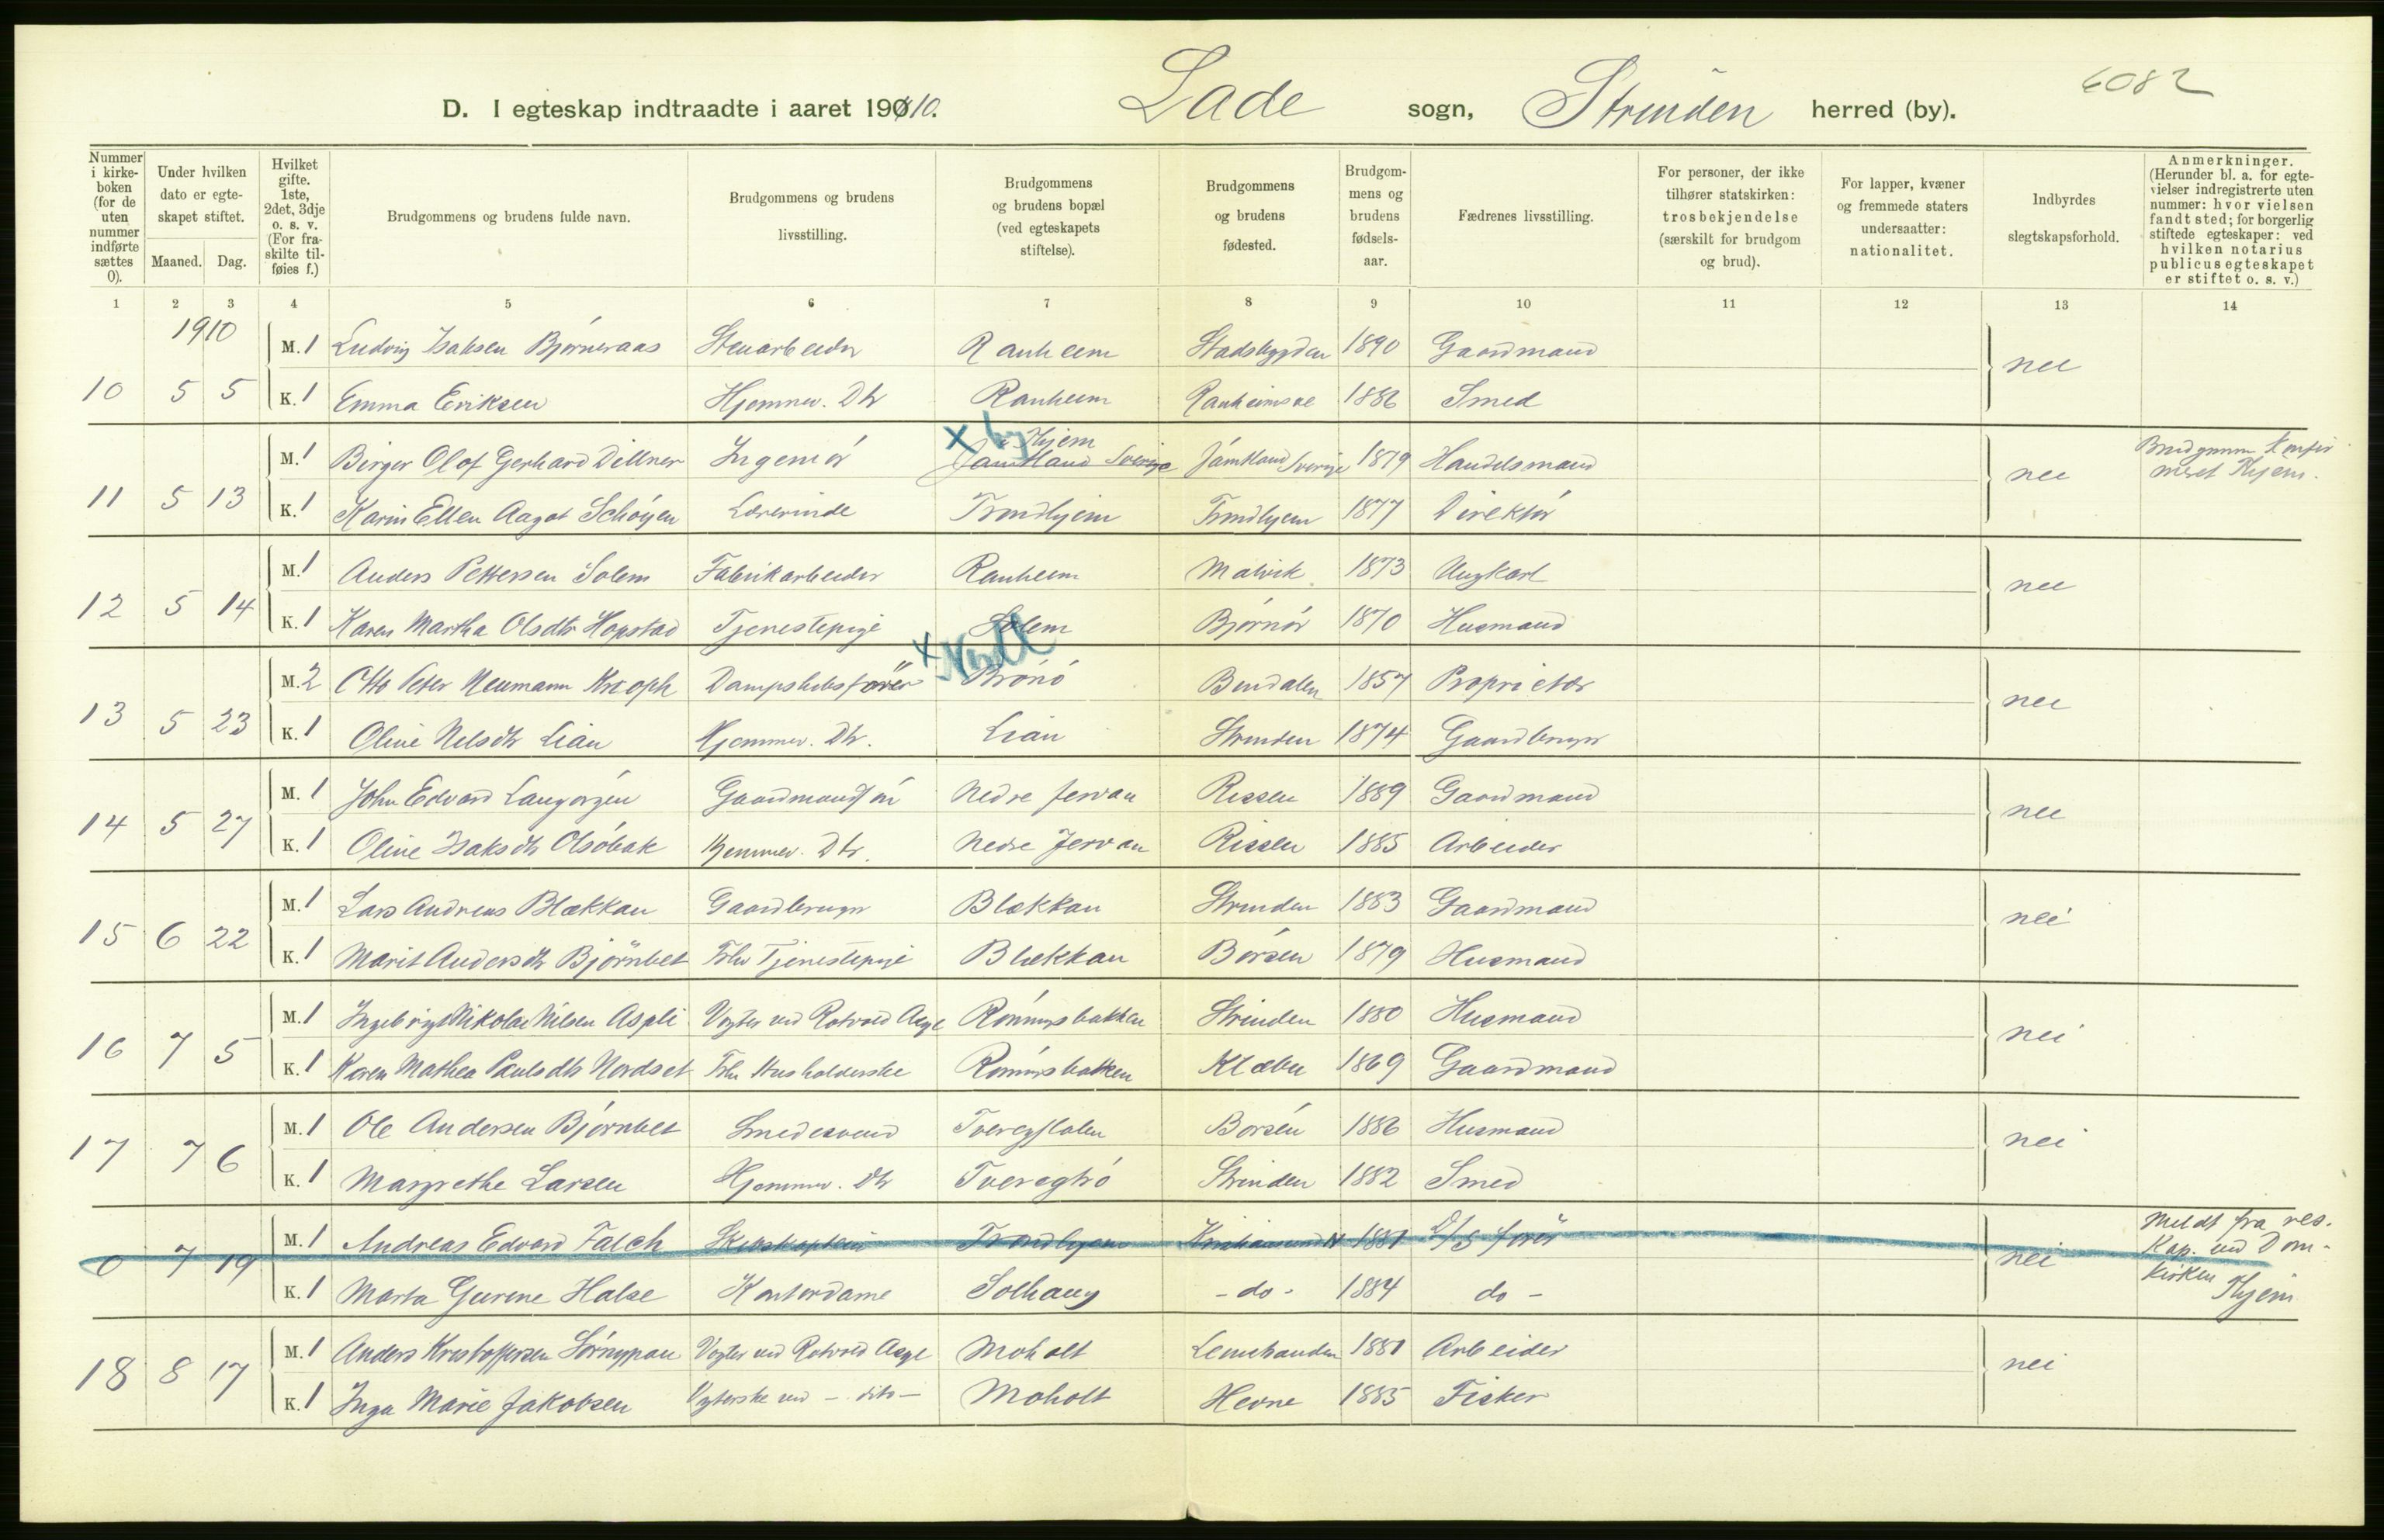 6082
D. I egteskap indtraadte i aaret 1910. Lade sogn, Strinden herred (by).
Nummer i kirkeboken (for de uten nummer indførte sættes 0).
Under hvilken dato er egteskapet stiftet.
Maaned. Dag.
Hvilket gifte. 1ste, 2det, 3dje o. s. v. (For fraskilte tilføies f.)
Brudgommens og brudens fulde navn.
Brudgommens og brudens livsstilling.
Brudgommens og brudens bopæl (ved egteskapets stiftelse).
Brudgommens og brudens fødested.
Brudgommens og brudens fødselsaar.
Fædrenes livsstilling.
For personer, der ikke tilhører statskirken: trosbekjendelse (særskilt for brudgom og brud).
For lapper, kvæner og fremmede staters undersaatter: nationalitet.
Indbyrdes slegtskapsforhold.
Anmerkninger. (Herunder bl. a. for egtevielser indregistrerte uten nummer: hvor vielsen fandt sted; for borgerlig stiftede egteskaper: ved hvilken notarius publicus egteskapet er stiftet o. s. v.)
1 2 3 4 5 6 7 8 9 10 11 12 13 14
1910
M. 1 Ludvig Isaksen Bjørneraas Stenarbeider Ranheim Stadsbygden 1890 Gaardmand
10 5 5 K. 1 Emma Eriksen Hjemmev. Dtr Ranheim 1886 Smed nei
M. 1 Birger Olof Gerhard Dillner Ingeniør Jämtland Sverige Thjem Jämtland Sverige 1879 Handelsmand Brudgommen
11 5 13 K. 1 Karin Ellen Aagot Schøyen Lærerinde Trondhjem Trondhjem 1877 Direktør nei
M. 1 Anders Pettersen Solem Fabrikarbeider Ranheim Malvik 1873 Ungkarl
12 5 14 K. 1 Karen Martha Olsdtr Hopstad Tjenestepige Solem Bjørnør 1870 Husmand nei
M. 2 Otto Peter Neumann Knoph Dampskibsfører Brønø Bindalen 1857 Proprietær
13 5 23 K. 1 Oline Nelsdtr Lian Hjemmev. Dtr. Lian Strinden 1874 Gaardbruger nei
M. 1 John Edvard Langørgen Gaardmandssøn Nedre Jervan Rissen 1889 Gaardmand
14 5 27 K. 1 Oline Isaksdtr Olsøbak Hjemmev. Dtr. Nedre Jervan Rissen 1885 Arbeider nei
M. 1 Lars Andreas Blækkan Gaardbruger Blækkan Strinden 1883 Gaardmand
15 6 22 K. 1 Marit Andersdtr Bjørnbet Fhv Tjenestepige Blækkan Børsen 1879 Husmand nei
M. 1 Ingebrigt Nikolai Nilsen Aspli Vogter ved Rotvold Asyl Rønningsbakken Strinden 1880 Husmand
16 7 5 K. 1 Karen Mathea Paulsdtr Nordset Fhv Husholderske Rønningsbakken Klæbu 1869 Gaardmand nei
M. 1 Ole Andersen Bjørnbet Smedesvend Børsen 1886 Husmand
17 7 6 K. 1 Margrethe Larsen Hjemmev. Dtr Strinden 1882 Smed nei
M. 1 Andreas Edvard Falch Skibskaptein Trondhjem Kristiansund N 1881 D/S fører Meldt fra res.
0 7 19 nei Kap. ved Dom-
K. 1 Marta Gurine Halse Kontordame Solhaug - do - 1884 do - kirken Thjem
M. 1 Anders Kristoffersen Sørnypan Vogter ved Rotvold Asyl Moholt Leinstranden 1881 Arbeider
18 8 17 K. 1 Inga Marie Jakobsen Vogterske ved - dito - Moholt Hevne 1885 Fisker nei